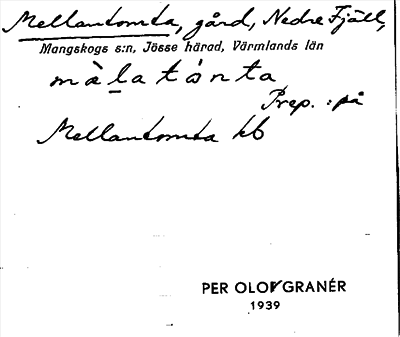 Mellantomta, gård, Nedre Fjäll,
Mangskogs s:n, Jösse härad, Värmlands län
màl̠atónta
Prep. : på
Mellantomta kb
PER OLOF GRANÉR
1939